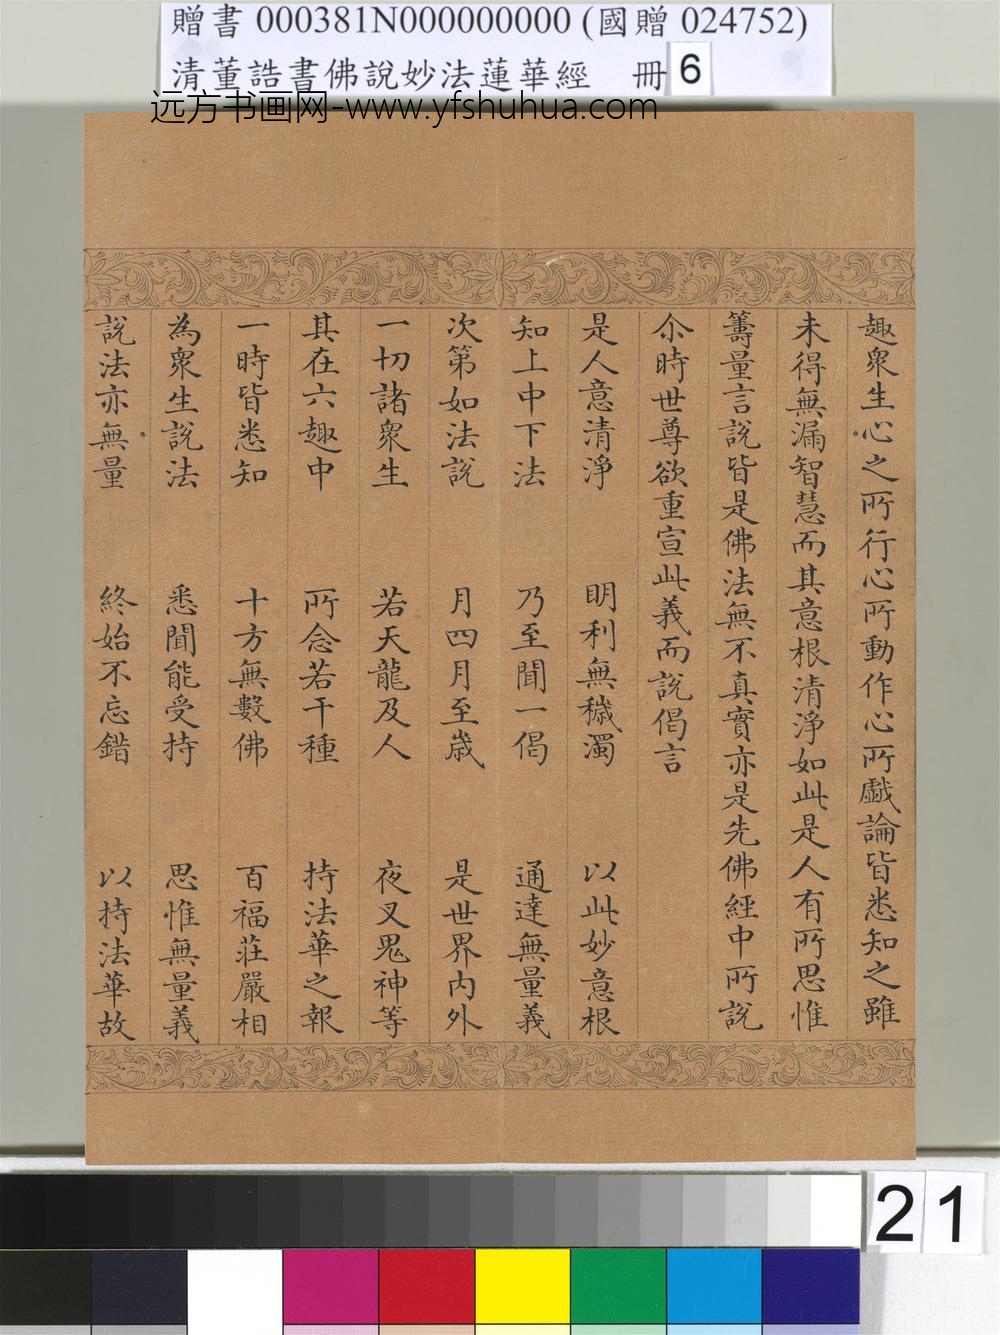 贈書 000381N000000000 (國贈 024752)
清董誥書佛說妙法蓮華經 冊 6
远方书画网-www.yfshuhua.com
趣衆生心之所行心所動作心所戲論皆悉知之雖
未得無漏智慧而其意根清淨如此是人有所思惟
籌量言説皆是佛法無不真實亦是先佛經中所説
尒時世尊欲重宣此義而説偈言
是人意清淨 明利無穢濁 以此妙意根
知上中下法 乃至聞一偈 通達無量義
次第如法説 月四月至歲 是世界内外
一切諸衆生 若天龍及人 夜叉鬼神等
其在六趣中 所念若干種 持法華之報
一時皆悉知 十方無數佛 百福莊嚴相
為衆生説法 悉聞能受持 思惟無量義
説法亦無量 終始不忘錯 以持法華故
21